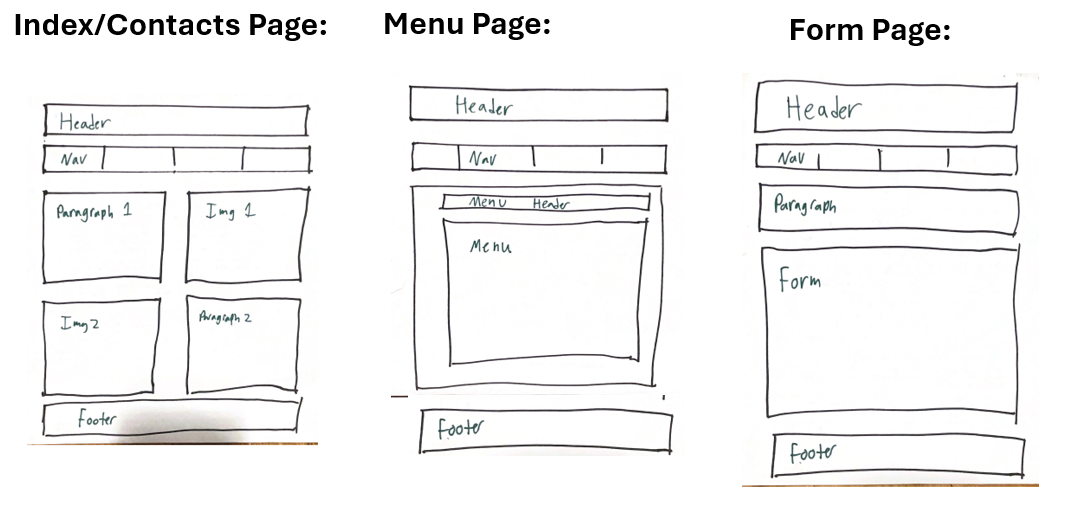 Index/Contacts Page:
Header
Nav
Paragraph 1
Img 1
Img 2
Paragraph 2
Footer
Menu Page:
Header
Nav
Menu Header
Menu
Footer
Form Page:
Header
Nav
Paragraph
Form
Footer